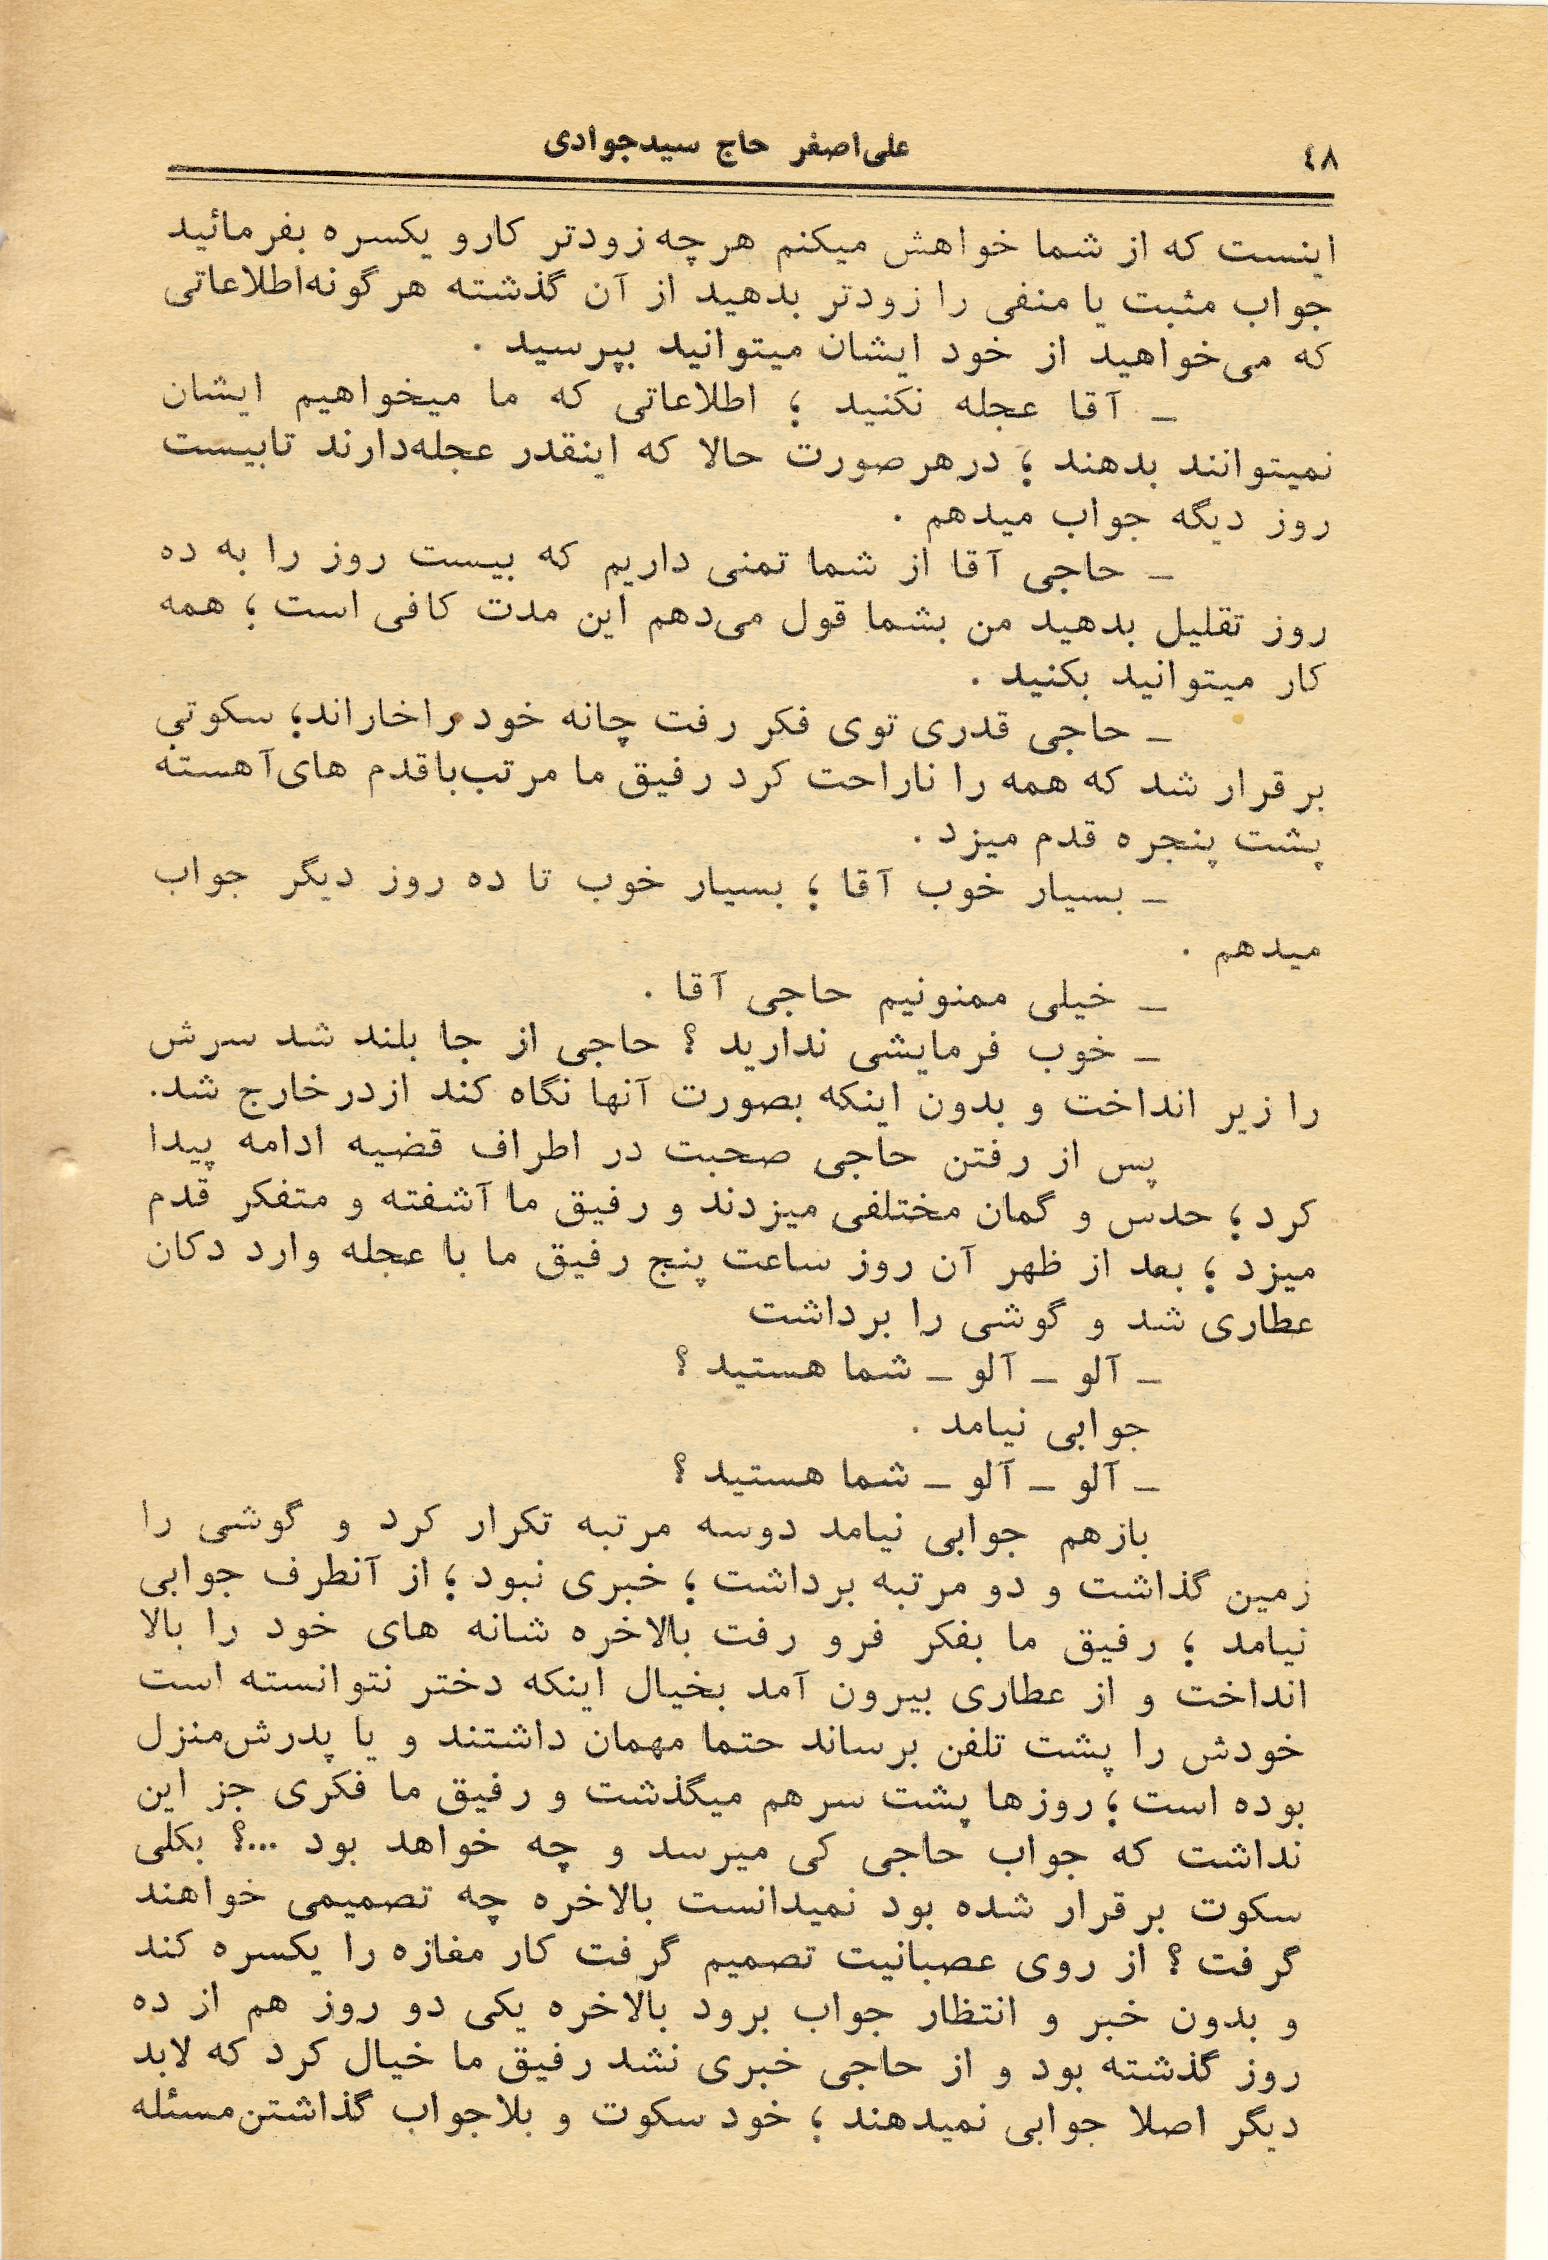 ٤٨
علی‌اصغر حاج سیدجوادی
اینست که از شما خواهش میکنم هرچه زودتر کارو یکسره بفرمائید
جواب مثبت یا منفی را زودتر بدهید از آن گذشته هرگونه‌اطلاعاتی
که می‌خواهید از خود ایشان میتوانید بپرسید .
ــ آقا عجله نکنید ؛ اطلاعاتی که ما میخواهیم ایشان
نمیتوانند بدهند ؛ درهرصورت حالا که اینقدر عجله‌دارند تابیست
روز دیگه جواب میدهم .
ــ حاجی آقا از شما تمنی داریم که بیست روز را به ده
روز تقلیل بدهید من بشما قول می‌دهم این مدت کافی است ؛ همه
کار میتوانید بکنید .
ــ حاجی قدری توی فکر رفت چانه خود راخاراند؛ سکوتی
برقرار شد که همه را ناراحت کرد رفیق ما مرتب‌باقدم های‌آهسته
پشت پنجره قدم میزد .
ــ بسیار خوب آقا ؛ بسیار خوب تا ده روز دیگر جواب
میدهم .
ــ خیلی ممنونیم حاجی آقا .
ــ خوب فرمایشی ندارید ؟ حاجی از جا بلند شد سرش
را زیر انداخت و بدون اینکه بصورت آنها نگاه کند ازدرخارج شد.
پس از رفتن حاجی صحبت در اطراف قضیه ادامه پیدا
کرد ؛ حدس و گمان مختلفی میزدند و رفیق ما آشفته و متفکر قدم
میزد ؛ بعد از ظهر آن روز ساعت پنج رفیق ما با عجله وارد دکان
عطاری شد و گوشی را برداشت
ــ آلو ــ آلو ــ شما هستید ؟
جوابی نیامد .
ــ آلو ــ آلو ــ شما هستید ؟
بازهم جوابی نیامد دوسه مرتبه تکرار کرد و گوشی را
زمین گذاشت و دو مرتبه برداشت ؛ خبری نبود ؛ از آنطرف جوابی
نیامد ؛ رفیق ما بفکر فرو رفت بالاخره شانه های خود را بالا
انداخت و از عطاری بیرون آمد بخیال اینکه دختر نتوانسته است
خودش را پشت تلفن برساند حتما مهمان داشتند و یا پدرش‌منزل
بوده است ؛ روزها پشت سرهم میگذشت و رفیق ما فکری جز این
نداشت که جواب حاجی کی میرسد و چه خواهد بود ...؟ بکلی
سکوت برقرار شده بود نمیدانست بالاخره چه تصمیمی خواهند
گرفت ؟ از روی عصبانیت تصمیم گرفت کار مغازه را یکسره کند
و بدون خبر و انتظار جواب برود بالاخره یکی دو روز هم از ده
روز گذشته بود و از حاجی خبری نشد رفیق ما خیال کرد که لابد
دیگر اصلا جوابی نمیدهند ؛ خود سکوت و بلاجواب گذاشتن‌مسئله